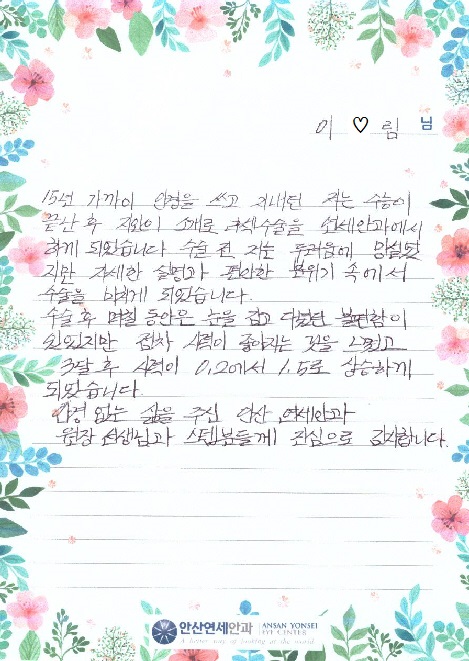 이 ♡ 림 님
15년 가까이 안경을 쓰고 지내던 저는 수능이
끝난 후 지인의 소개로 라섹수술을 연세안과에서
하게 되었습니다 수술 전 저는 두려움에 망설였
지만 자세한 설명과 편안한 분위기 속에서
수술을 마치게 되었습니다.
수술 후 며칠 동안은 눈을 감고 다녔던 불편함이
있었지만 점차 시력이 좋아지는 것을 느꼈고
3달 후 시력이 0.2에서 1.5로 상승하게
되었습니다.
안경 없는 삶을 주신 안산 연세안과
원장 선생님과 스텝분들께 진심으로 감사합니다.
안산연세안과 ANSAN YONSEI EYE CENTER
A better way of looking at the world